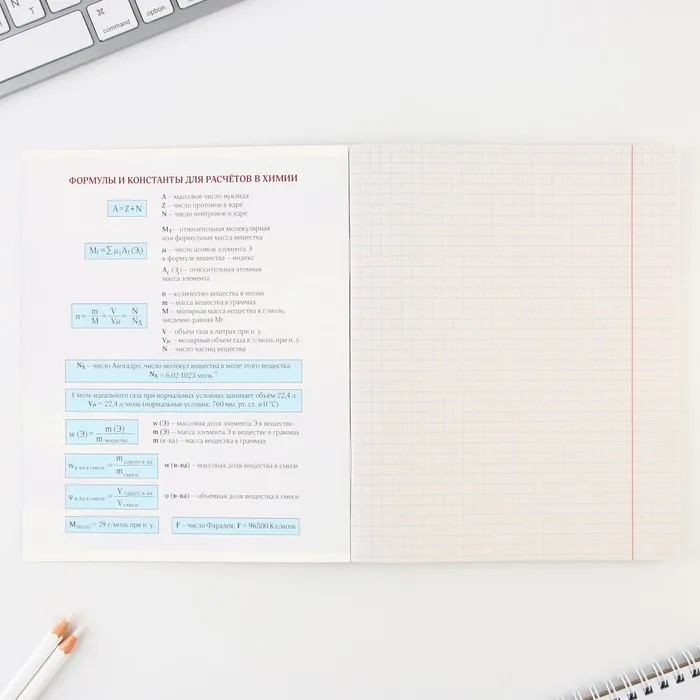 N
T
⌘
command
option
ФОРМУЛЫ И КОНСТАНТЫ ДЛЯ РАСЧЁТОВ В ХИМИИ
A=Z+N
A – массовое число нуклида
Z – число протонов в ядре
N – число нейтронов в ядре
Mr=∑μiAr(Эi)
Mr – относительная молекулярная
или формульная масса вещества
μ – число атомов элемента Э
в формуле вещества – индекс
Ar (Эi) – относительная атомная
масса элемента
n = m/M = V/Vμ = N/NA
n – количество вещества в молях
m – масса вещества в граммах
M – молярная масса вещества в г/моль,
численно равная Mr
V – объём газа в литрах при н. у.
Vμ – молярный объём газа в л/моль при н. у.
N – число частиц вещества
NA – число Авогадро, число молекул вещества в моле этого вещества
NA = 6,02·1023 моль⁻¹
1 моль идеального газа при нормальных условиях занимает объём 22,4 л
Vμ = 22,4 л/моль (нормальные условия: 760 мм. рт. ст. и 0 °С)
w (Э) = m (Э) / m вещества
w (Э) – массовая доля элемента Э в веществе
m (Э) – масса элемента Э в веществе в граммах
m (в-ва) – масса вещества в граммах
w в-ва в смеси = m одного в-ва / m смеси
w (в-ва) – массовая доля вещества в смеси
φ в-ва в смеси = V одного в-ва / V смеси
φ (в-ва) – объемная доля вещества в смеси
M(возд) = 29 г/моль при н. у.
F – число Фарадея, F = 96500 Кл/моль